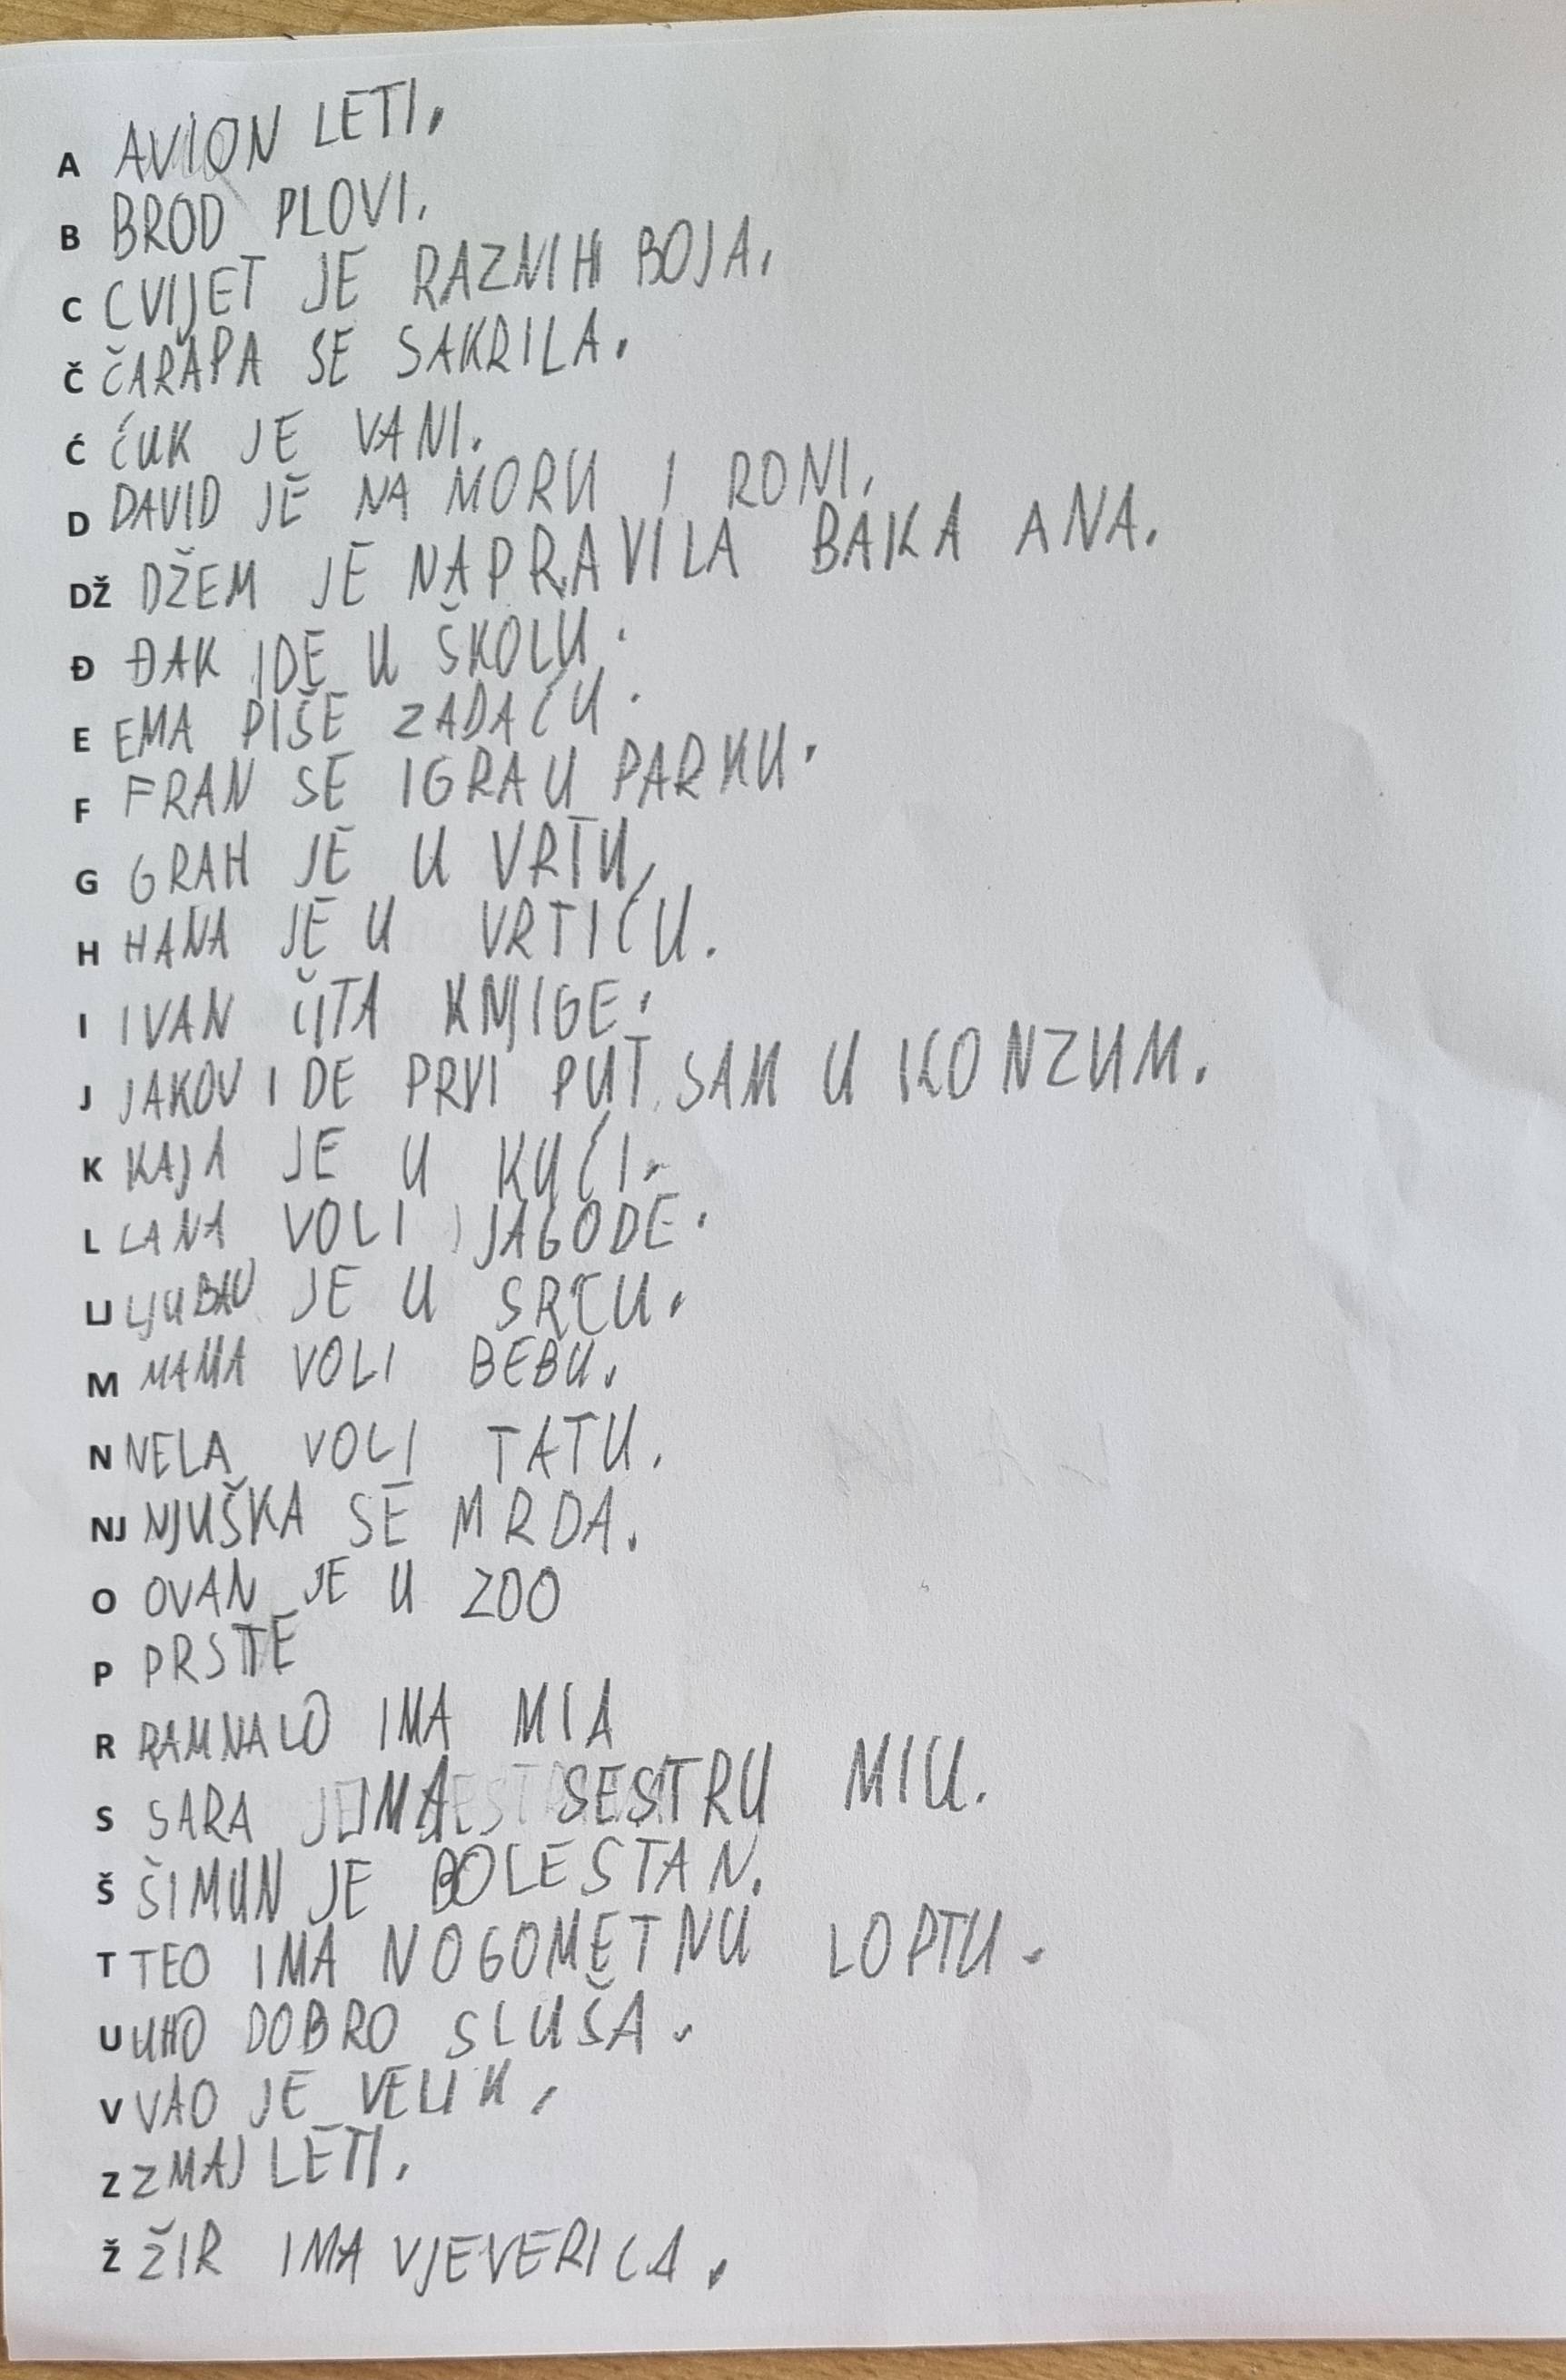 A AVION LETI.
B BROD PLOVI.
C CVIJET JE RAZNIH BOJA.
Č ČARAPA SE SAKRILA.
Ć ĆUK JE VANI.
D DAVID JE NA MORU I RONI.
DŽ DŽEM JE NAPRAVILA BAKA ANA.
Đ ĐAK IDE U ŠKOLU.
E EMA PIŠE ZADAĆU.
F FRAN SE IGRA U PARKU.
G GRAH JE U VRTU,
H HANA JE U VRTIĆU.
I IVAN ČITA KNJIGE.
J JAKOV IDE PRVI PUT SAM U KONZUM.
K KAJA JE U KUĆI.
L LANA VOLI JAGODE.
LJ LJUBAV JE U SRCU.
M MAMA VOLI BEBU.
N NELA VOLI TATU.
NJ NJUŠKA SE MRDA.
O OVAN JE U ZOO
P PRSTE
R RAMNALO IMA MIA
S SARA IMA SESTRU MIU.
Š ŠIMUN JE BOLESTAN.
T TEO IMA NOGOMETNU LOPTU.
U UHO DOBRO SLUŠA.
V VAO JE VELIK,
Z ZMAJ LETI.
Ž ŽIR IMA VJEVERICA.